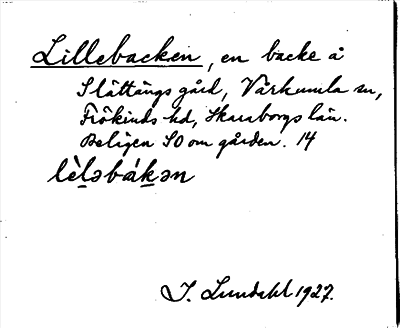 Lillebacken, en backe å
Slättängs gård, Vårkumla sn,
Frökinds hd, Skaraborgs län.
Belägen SO om gården. 14
lèl̠əbák̠ən
I. Lundahl 1927.